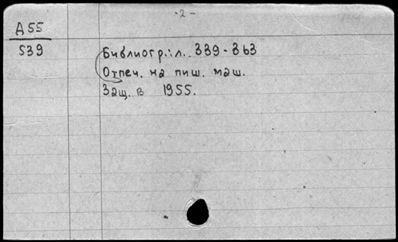 - 2 -
А55
539
Библиогр.: л. 339-363
Отпеч. на пиш. маш.
Защ. в 1955.